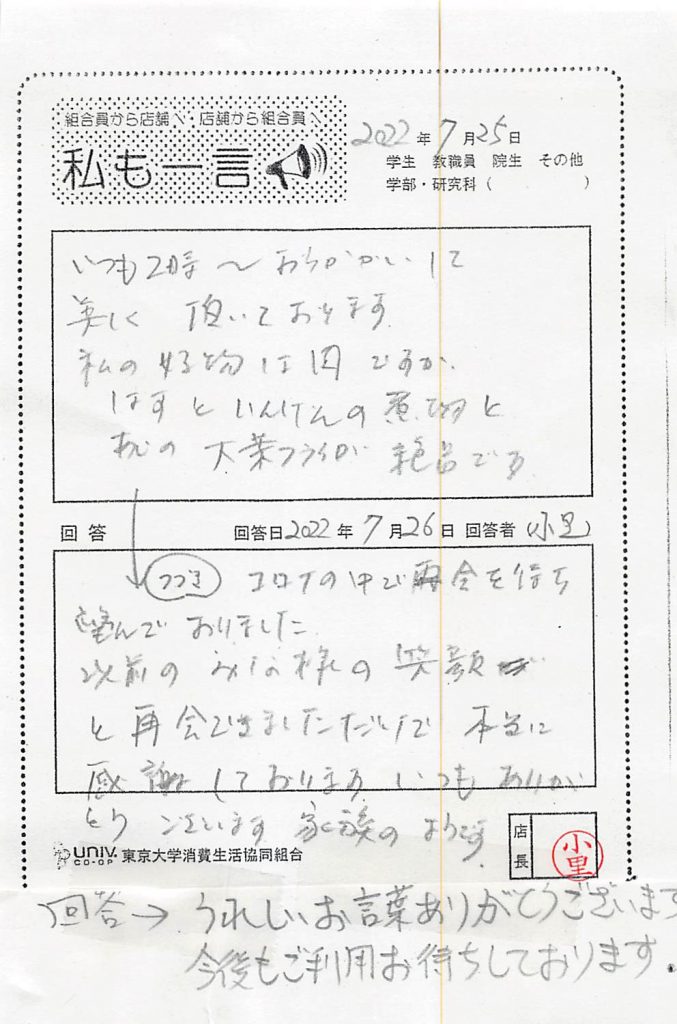 組合員から店舗へ・店舗から組合員へ
私も一言
2022年7月25日
学生 教職員 院生 その他
学部・研究科( )
いつも2時〜おうかがいして
美しく 頂いております
私の好物は ですが、
はすといんげんの煮物と
の大葉フライが 絶品です
回答 回答日2022年7月26日 回答者(小里)
つづき コロナの中で再会を待ち
望んでおりました
以前のみな様の笑顔
と再会できましただけで 本当に
感謝しております いつもありが
とうございます 家族のようです
UNIV. CO-OP 東京大学消費生活協同組合
店長 小里
回答→うれしいお言葉ありがとうございます
今後もご利用お待ちしております.